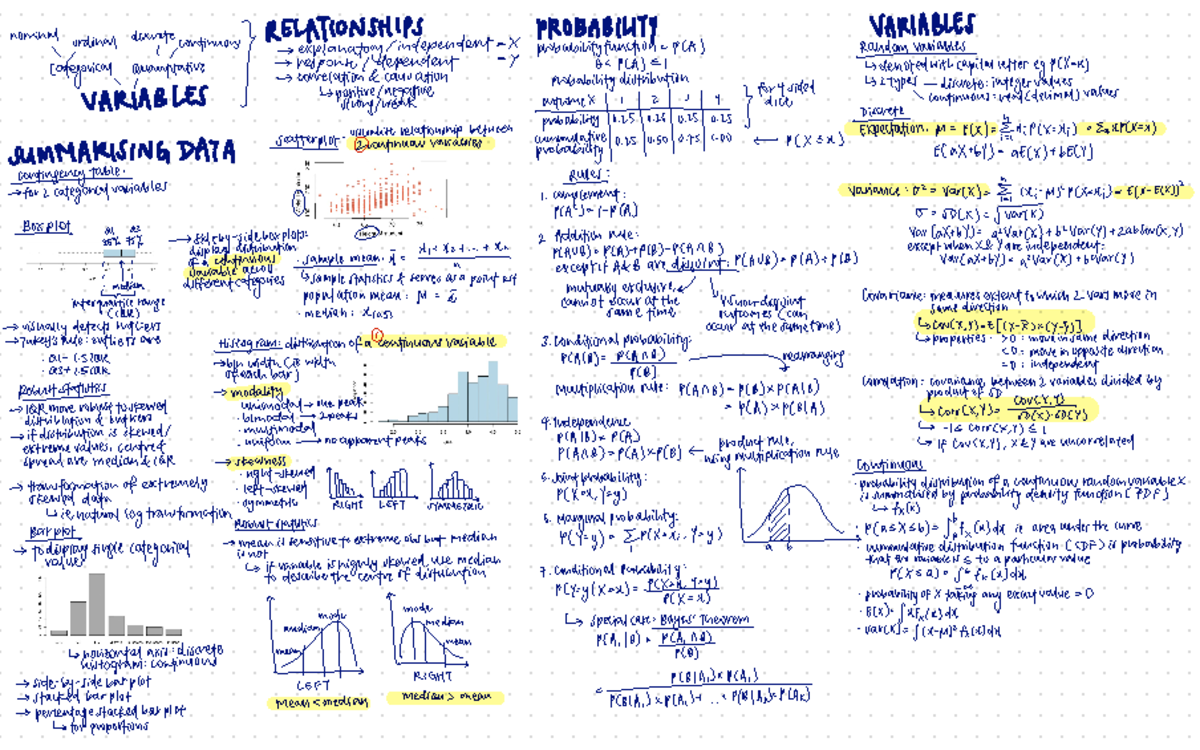 nominal ordinal discrete continuous
Categorical Quantitative
VARIABLES
SUMMARISING DATA
Contingency table:
→ for 2 categorical variables
Box plot
Q1 Q3
25% 75%
median
interquartile range
(IQR)
→ side-by-side box plots:
display distribution
of a continuous
variable across
different categories
→ visually detects outliers
→ Tukey's rule: outliers are
Robust statistics
→ IQR more robust to skewed
distribution & outliers
→ if distribution is skewed/
extreme values, centre &
spread are median & IQR
→ transformation of extremely
skewed data
↳ ie natural log transformation
Bar plot
→ to display single categorical
values
↳ horizontal axis: discrete
histogram: continuous
→ side-by-side bar plot
→ stacked bar plot
→ percentage stacked bar plot
↳ for proportions
RELATIONSHIPS
→ explanatory/independent = X
→ response/dependent = Y
→ correlation & causation
↳ positive/negative
strong/weak
Scatterplot: visualise relationship between
2 continuous variables
· sample mean: x̄ = x₁ + x₂ + ... + xₙ / n
↳ sample statistics & serves as a point est
population mean: μ = x̄
· median:
Histogram: distribution of a continuous variable
1
→ bin width (ie width
of each bar)
→ modality
· unimodal → one peak
· bimodal → 2 peaks
· multimodal
· uniform → no apparent peaks
→ skewness
· right-skewed
· left-skewed
· symmetric
RIGHT LEFT SYMMETRIC
Robust statistics
→ mean is sensitive to extreme obs but median
is not
↳ if variable is highly skewed, use median
to describe the centre of distribution
mode
median
mean
LEFT
mean < median
mode
median
mean
RIGHT
median > mean
PROBABILITY
probability function = P(A)
0 < P(A) ≤ 1
Probability distribution
outcome X 1 2 3 4
probability 0.25 0.25 0.25 0.25
cumulative probability 0.25 0.50 0.75 1.00
for 4 sided
dice
← P(X ≤ x)
Rules:
1. complement:
P(Aᶜ) = 1 - P(A)
2. Addition rule:
P(A∪B) = P(A) + P(B) - P(A∩B)
except if A & B are disjoint: P(A∪B) = P(A) + P(B)
mutually exclusive,
cannot occur at the
same time
VS non-disjoint
outcomes (can
occur at the same time)
3. Conditional probability:
P(A|B) = P(A∩B) / P(B)
rearranging
multiplication rule: P(A∩B) = P(B) × P(A|B)
= P(A) × P(B|A)
4. Independence
P(A|B) = P(A)
P(A∩B) = P(A) × P(B) ← product rule,
using multiplication rule
5. Joint probability:
P(X=x, Y=y)
6. Marginal probability:
P(Y=y) = Σ P(X=xᵢ, Y=y)
7. Conditional Probability:
P(Y=y|X=x) = P(X=x, Y=y) / P(X=x)
↳ special case: Bayes' Theorem
P(A₁|B) = P(A₁∩B) / P(B)
= P(B|A₁) × P(A₁) / P(B|A₁) × P(A₁) + ... + P(B|Aₖ) × P(Aₖ)
a b
VARIABLES
Random variables
↳ denoted with capital letter eg P(X=x)
↳ 2 types — discrete: integer values
continuous: real (decimal) values
Discrete
Expectation: μ = E(X) = Σ xᵢ P(X=xᵢ) = Σₓ xP(X=x)
E(aX+bY) = aE(X) + bE(Y)
Variance: σ² = Var(X) = Σ (xᵢ-μ)² P(X=xᵢ) = E(X-E(X))²
σ = SD(X) = √Var(X)
Var(aX+bY) = a²Var(X) + b²Var(Y) + 2abCov(X,Y)
except when X & Y are independent:
Var(aX+bY) = a²Var(X) + b²Var(Y)
Covariance: measures extent to which 2 vars move in
same direction
↳ Cov(X,Y) = E[(X-X̄)×(Y-Ȳ)]
↳ properties: >0: move in same direction
<0: move in opposite direction
=0: independent
Correlation: covariance between 2 variables divided by
product of SD
↳ Corr(X,Y) = Cov(X,Y) / SD(X)·SD(Y)
↳ -1 ≤ Corr(X,Y) ≤ 1
↳ if Cov(X,Y), X & Y are uncorrelated
Continuous
· probability distribution of a continuous random variable X
is summarised by probability density function (PDF)
↳ fₓ(x)
· P(a≤X≤b) = ∫ fₓ(x)dx ie area under the curve
· cumulative distribution function (CDF) is probability
that the variable is ≤ to a particular value
P(X≤a) = ∫ fₓ(x)dx
· probability of X taking any exact value = 0
· E(X) = ∫ xfₓ(x)dx
· Var(X) = ∫ (x-μ)² fₓ(x)dx